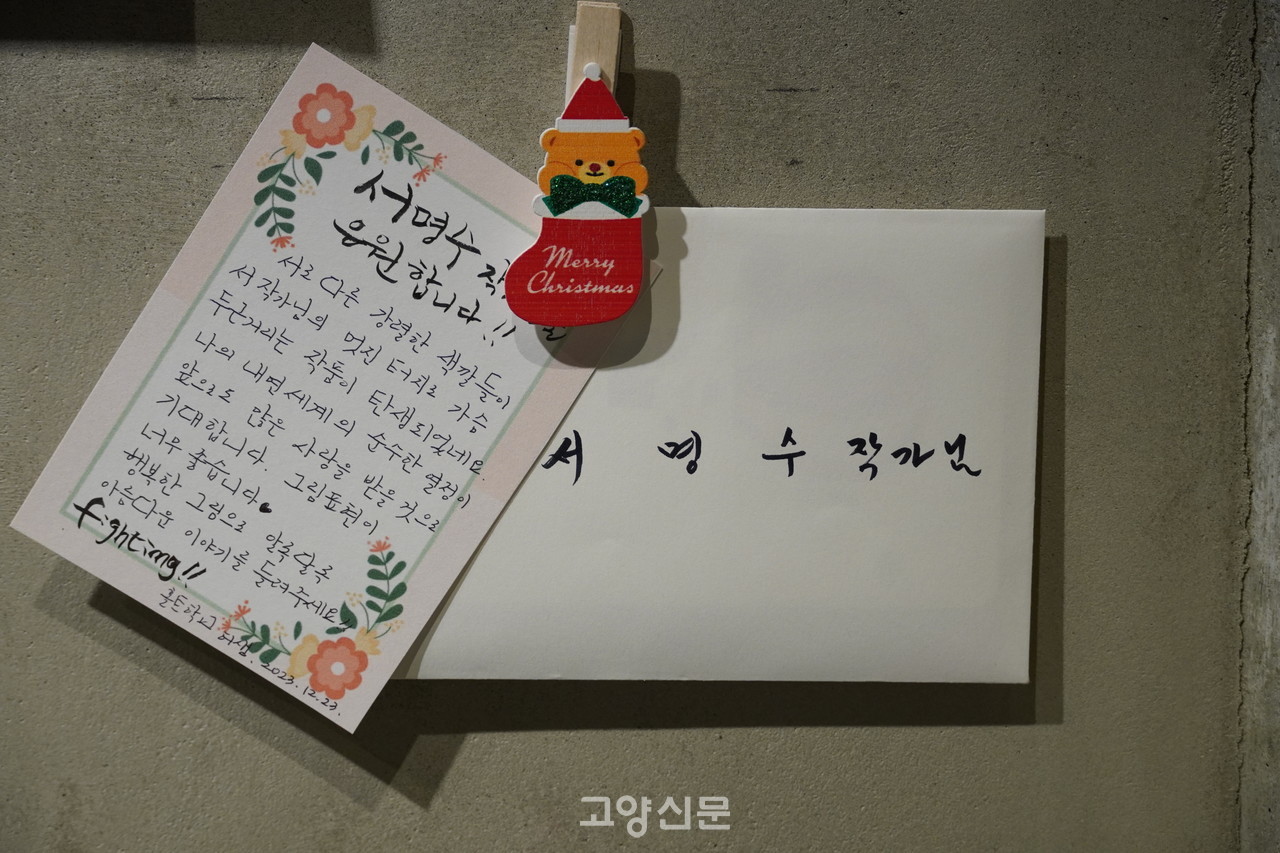 서명수 작
응원합니다!!
서로 다른 강렬한 색깔들이
서 작가님의 멋진 터치로 가슴
두근거리는 작품이 탄생되었네요.
나의 내면세계의 순수한 열정이
앞으로도 많은 사랑을 받을 것으로
기대합니다. 그림표현이
너무 좋습니다♥
행복한 그림으로 알록달록
아름다운 이야기를 들려주세요!!
fighting!!
홀트학교 허샘. 2023.12.23.
Merry
Christmas
서 명 수 작가님
고양신문